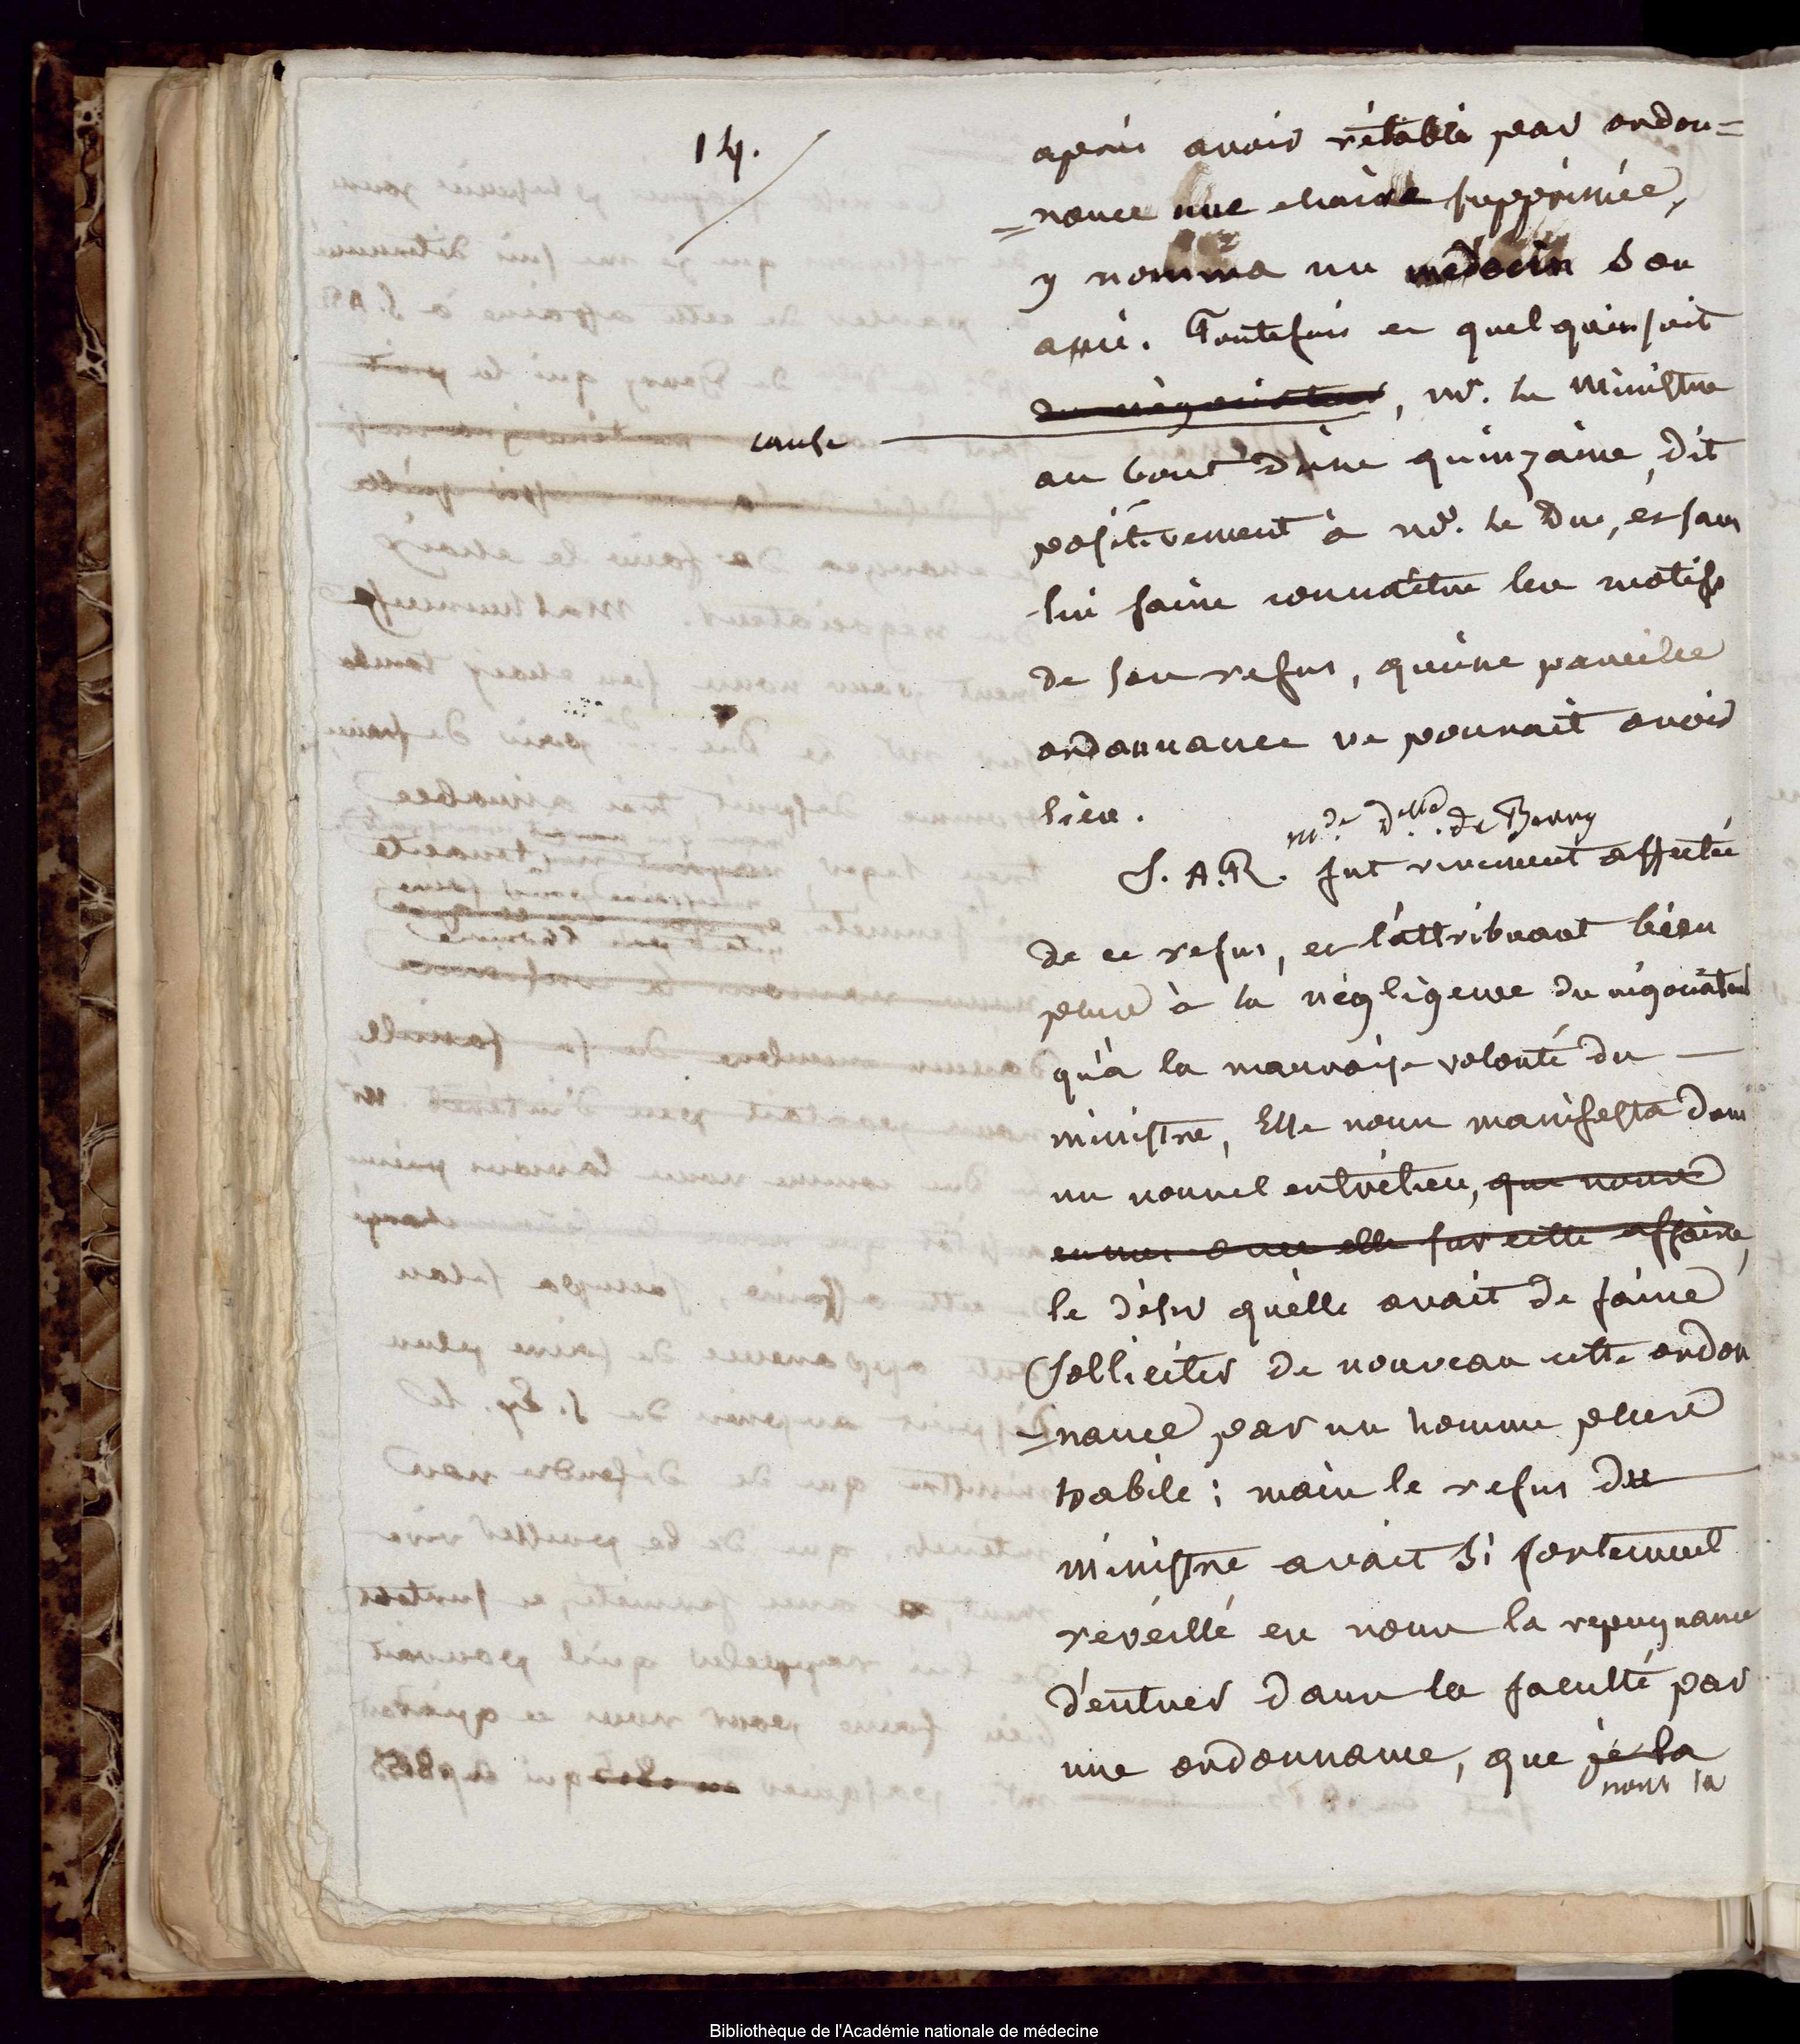 14.
après avoir rétabli par ordon=
=nance une chaire supprimée,
y nomma un médecin son
ami. Toutefois et quel qu'en soit
du négociateur, mr. le Ministre
cause
au bout d'une quinzaine, dit
positivement à mr. le Duc, et sans
lui faire connaître les motifs
de son refus, qu'une pareille
ordonnance ne pouvait avoir
lieu.
mde. Dsse. de Berry
S. A. R. fut vivement affectée
de ce refus, et l'attribuant bien
plus à la négligence du négociateur
qu'à la mauvaise volonté du
ministre, Elle nous manifesta dans
un nouvel entretien, que nous
eumes avec elle sur cette affaire,
le désir qu'elle avait de faire
solliciter de nouveau cette ordon
=nance par un homme plus
habile ; mais le refus du
ministre avait si fortement
réveillé en nous la repugnance
d'entrer dans la faculté par
une ordonnance, que je la
nous la
Bibliothèque de l'Académie nationale de médecine